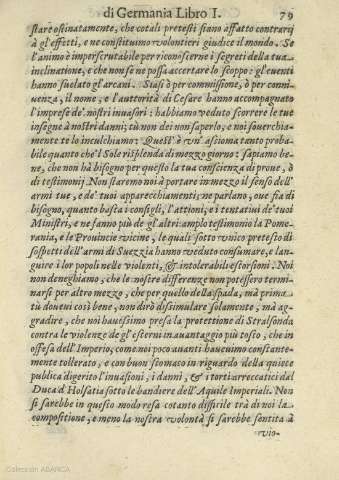 di Germania Libro I. 79
stare ostinatamente, che cotali pretesti siano affatto contrarij
à gl'effetti, e ne constituimo volontieri giudice il mondo. Se
l'animo è imperscrutabile per riconoscere i segreti della tua
inclinatione, e che non se ne possa accertare lo scoppo: gl'euenti
hanno suelato gl'arcani. Siasi ò per commissione, ò per conni-
uenza, il nome, e l'auttorità di Cesare hanno accompagnato
l'imprese de' nostri inuasori: habbiamo veduto scorrere le tue
insegne à nostri danni; tù non dei non saperlo, e noi souerchia-
mente te lo inculchiamo: Quest' è vn' asioma tanto proba-
bile quanto che'l Sole risplenda di mezzo giorno: sapiamo be-
ne, che non hà bisogno per questo la tua conscienza di proue, ò
di testimonij. Non staremo noi à portare in mezzo il senso dell'
armi tue, e de' tuoi apparecchiamenti; ne parlano, oue fia di
bisogno, quanto basta i consigli, l'attioni, e i tentatiui de' tuoi
Ministri, e ne fanno più de gl'altri amplo testimonio la Pome-
rania, e le Prouincie vicine, le quali sotto vnico pretesto di
sospetti dell'armi di Suezzia hanno veduto consumare, e lan-
guire i lor popoli nelle violenti, & intolerabili estorsioni. Noi
non deneghiamo, che le nostre differenze non potessero termi-
narsi per altro mezzo, che per quello della spada, mà prima
tù doueui così bene, non dirò dissimulare solamente, mà ag-
gradire, che noi hauessimo presa la protettione di Stralsonda
contra le violenze de gl'esterni in auantaggio più tosto, che in
offesa dell'Imperio, come noi poco auanti haueuimo constante-
mente tollerato, e con buon stomaco in riguardo della quiete
publica digerito l'inuasioni, i danni, & i torti arreccatici dal
Duca d'Holsatia sotto le bandiere dell'Aquile Imperiali. Non
si sarebbe in questo modo resa cotanto difficile trà di noi la
compositione, e meno la nostra volontà si sarebbe sentita à
vio-
Colección ABANCA